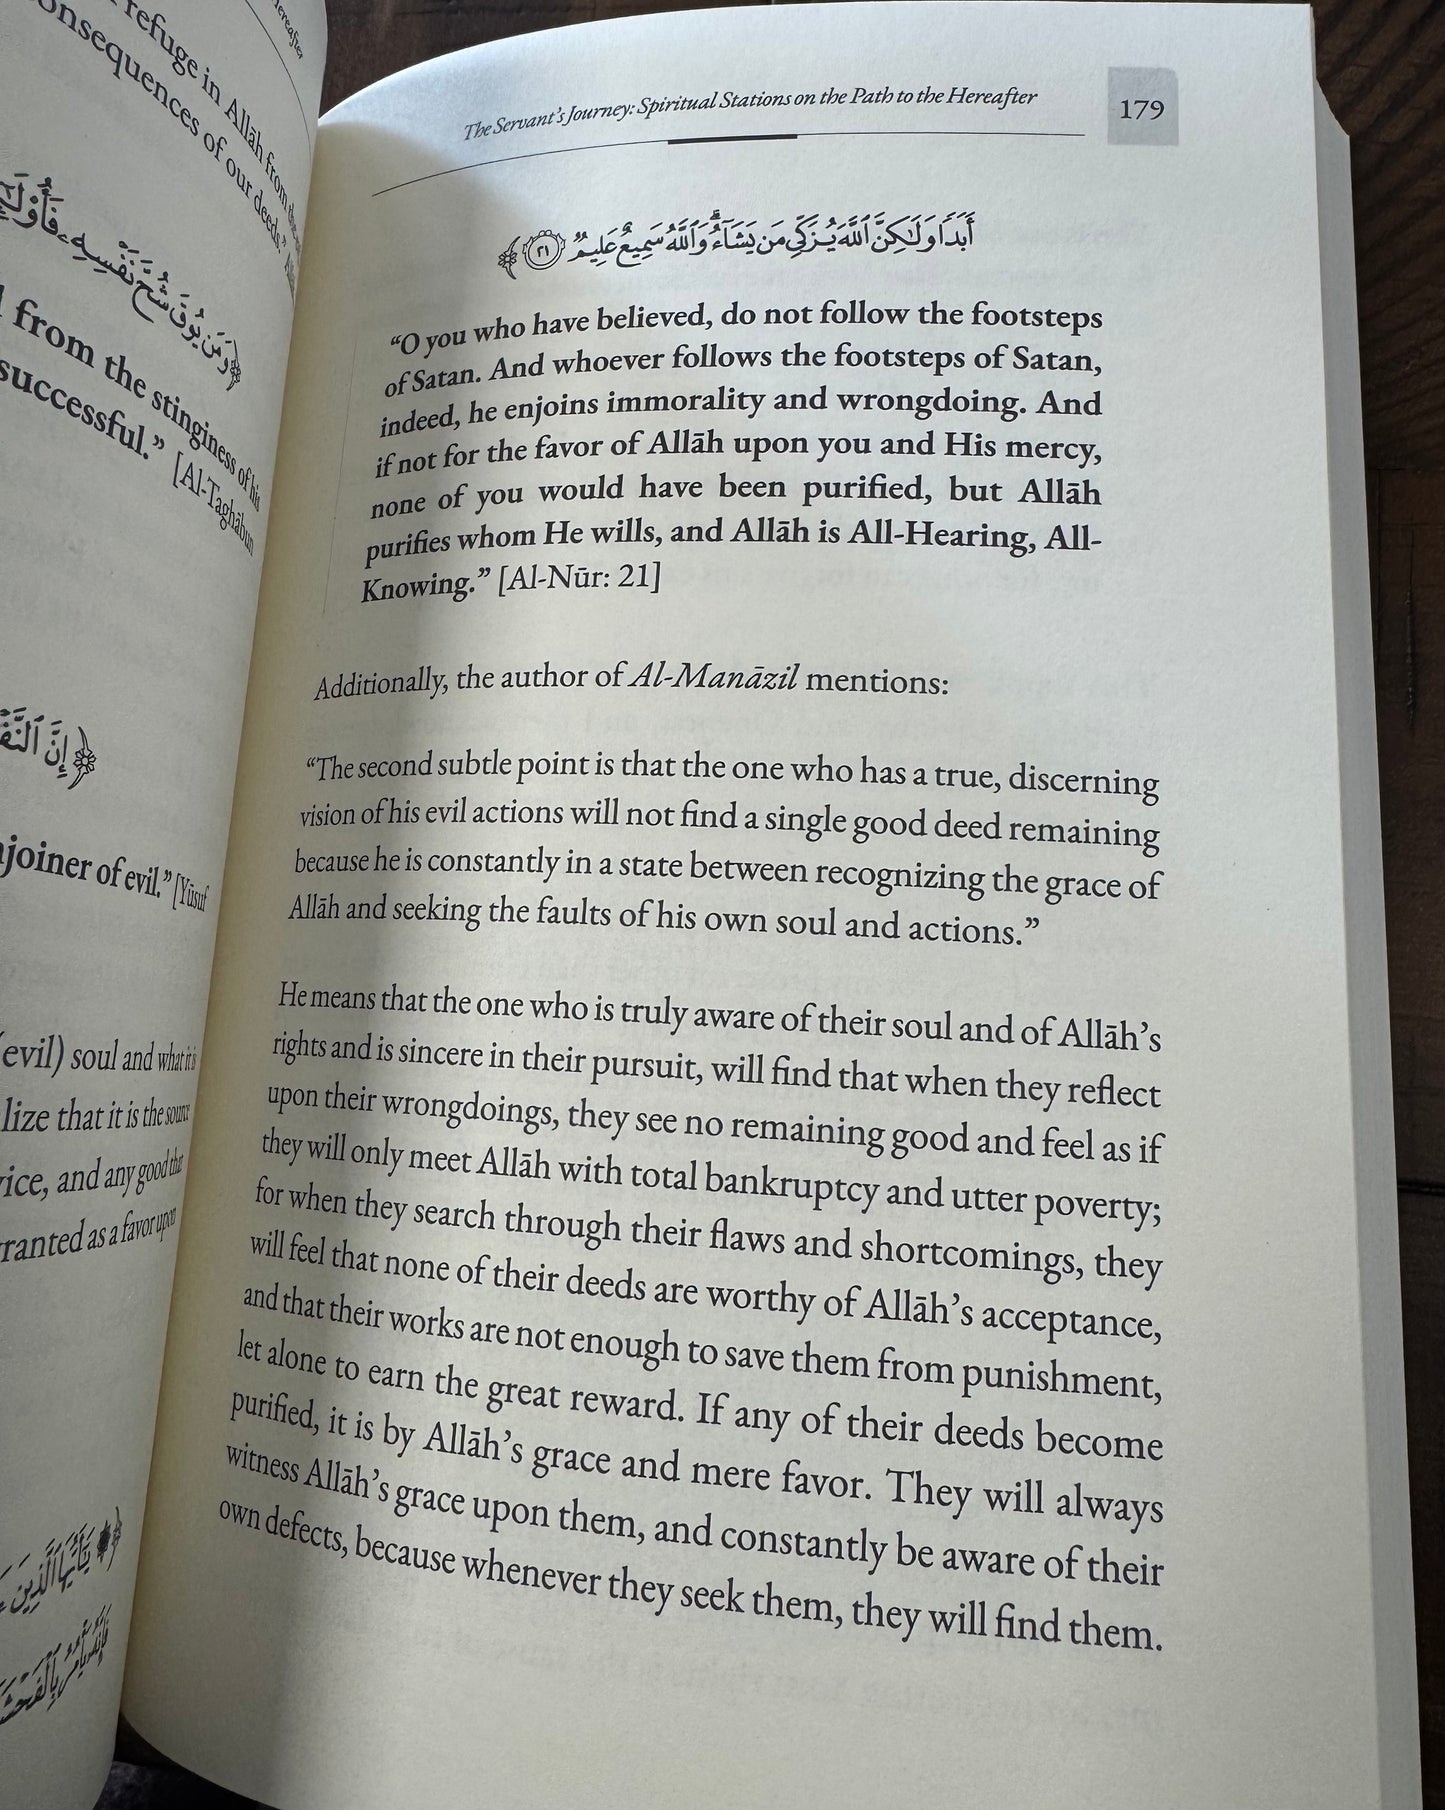 refuge in Allāh from
onsequences of our deeds."
﴿وَمَن يُوقَ شُحَّ نَفْسِهِۦ
from the stinginess of his
successful.” [Al-Taghābun
﴿إِنَّ ٱلنَّفْ
joiner of evil.” [Yūsuf
(evil) soul and what it is
lize that it is the source
ice, and any good that
ranted as a favor upon
﴿ يَٰٓأَيُّهَا ٱلَّذِينَ
The Servant’s Journey: Spiritual Stations on the Path to the Hereafter
179
أَبَدًا وَلَٰكِنَّ ٱللَّهَ يُزَكِّى مَن يَشَآءُ ۗ وَٱللَّهُ سَمِيعٌ عَلِيمٌ ٢١ ﴾
“O you who have believed, do not follow the footsteps
of Satan. And whoever follows the footsteps of Satan,
indeed, he enjoins immorality and wrongdoing. And
if not for the favor of Allāh upon you and His mercy,
none of you would have been purified, but Allāh
purifies whom He wills, and Allāh is All-Hearing, All-
Knowing.” [Al-Nūr: 21]
Additionally, the author of Al-Manāzil mentions:
“The second subtle point is that the one who has a true, discerning
vision of his evil actions will not find a single good deed remaining
because he is constantly in a state between recognizing the grace of
Allāh and seeking the faults of his own soul and actions.”
He means that the one who is truly aware of their soul and of Allāh’s
rights and is sincere in their pursuit, will find that when they reflect
upon their wrongdoings, they see no remaining good and feel as if
they will only meet Allāh with total bankruptcy and utter poverty;
for when they search through their flaws and shortcomings, they
will feel that none of their deeds are worthy of Allāh’s acceptance,
and that their works are not enough to save them from punishment,
let alone to earn the great reward. If any of their deeds become
purified, it is by Allāh’s grace and mere favor. They will always
witness Allāh’s grace upon them, and constantly be aware of their
own defects, because whenever they seek them, they will find them.